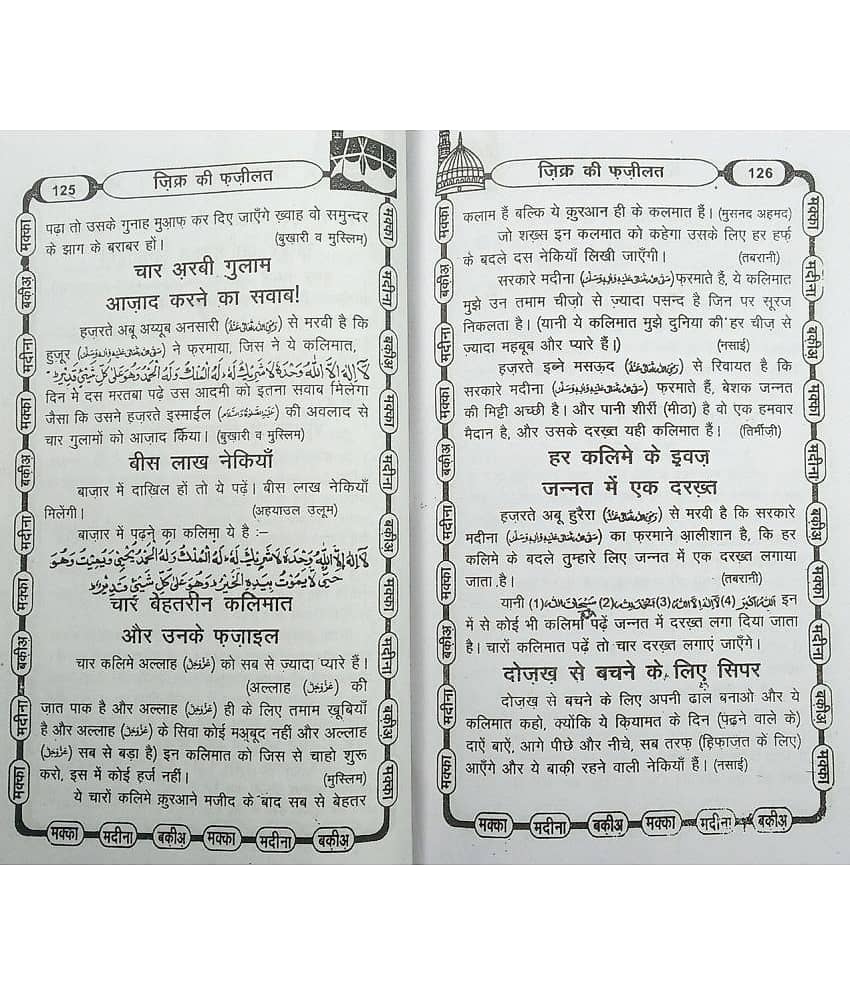 125
ज़िक्र की फ़ज़ीलत
पढ़ा तो उसके गुनाह मुआफ़ कर दिए जाएँगे ख़्वाह वो समुन्दर
के झाग के बराबर हों। (बुखा़री व मुस्लिम)
चार अ़रबी ग़ुलाम
आज़ाद करने का सवाब!
हज़रते अबू अय्यूब अनसारी (رَضِیَ اللہُ تَعَالٰی عَنْہُ) से मरवी है कि
हुज़ूर (صَلَّی اللہُ تَعَالٰی عَلَیْہِ وَاٰلِہٖ وَسَلَّمَ) ने फ़रमाया, जिस ने ये कलिमात,
لَا اِلٰهَ اِلَّا اللّٰهُ وَحْدَهٗ لَا شَرِيْكَ لَهٗ لَهُ الْمُلْكُ وَلَهُ الْحَمْدُ وَهُوَ عَلٰى كُلِّ شَىْءٍ قَدِيْرٌ ط
दिन मे दस मरतबा पढ़े उस आदमी को इतना सवाब मिलेगा
जैसा कि उसने हज़रते इस्माईल (عَلَیْہِ الصَّلٰوۃُ وَالسَّلَام) की अवलाद से
चार गुलामों को आज़ाद किया। (बुखा़री व मुस्लिम)
बीस लाख नेकियाँ
बाज़ार में दाख़िल हों तो ये पढ़ें। बीस लाख नेकियाँ
मिलेंगी। (अहयाउल उलूम)
बाज़ार में पढ़ने का कलिमा ये है :–
لَا اِلٰهَ اِلَّا اللّٰهُ وَحْدَهٗ لَا شَرِيْكَ لَهٗ لَهُ الْمُلْكُ وَلَهُ الْحَمْدُ يُحْيِىْ وَيُمِيْتُ وَهُوَ
حَىٌّ لَّا يَمُوْتُ بِيَدِهِ الْخَيْرُ ط وَهُوَ عَلٰى كُلِّ شَىْءٍ قَدِيْرٌ ط
चार बेहतरीन कलिमात
और उनके फ़ज़ाइल
चार कलिमे अल्लाह (عَزَّوَجَلَّ) को सब से ज़्यादा प्यारे हैं।
(अल्लाह (عَزَّوَجَلَّ) की
जात पाक है और अल्लाह (عَزَّوَجَلَّ) ही के लिए तमाम ख़ूबियाँ
है और अल्लाह (عَزَّوَجَلَّ) के सिवा कोई मअ़बूद नहीं और अल्लाह
(عَزَّوَجَلَّ) सब से बड़ा है) इन कलिमात को जिस से चाहो शुरू
करो, इस में कोई हर्ज नहीं। (मुस्लिम)
ये चारों कलिमे क़ुरआने मजीद के बाद सब से बेहतर
मक्का मदीना बक़ीअ़ मक्का मदीना बक़ीअ़
126
ज़िक्र की फ़ज़ीलत
कलाम हैं बल्कि ये क़ुरआन ही के कलमात हैं। (मुसनद अहमद)
जो शख़्स इन कलमात को कहेगा उसके लिए हर हर्फ़
के बदले दस नेकियाँ लिखी जाएँगी। (तबरानी)
सरकारे मदीना (صَلَّی اللہُ تَعَالٰی عَلَیْہِ وَاٰلِہٖ وَسَلَّمَ) फ़रमाते हैं, ये कलिमात
मुझे उन तमाम चीज़ो से ज़्यादा पसन्द है जिन पर सूरज
निकलता है। (यानी ये कलिमात मुझे दुनिया की हर चीज़ से
ज़्यादा महबूब और प्यारे हैं।) (नसाई)
हज़रते इब्ने मसऊद (رَضِیَ اللہُ تَعَالٰی عَنْہُ) से रिवायत है कि
सरकारे मदीना (صَلَّی اللہُ تَعَالٰی عَلَیْہِ وَاٰلِہٖ وَسَلَّمَ) फ़रमाते हैं, बेशक जन्नत
की मिट्टी अच्छी है। और पानी शीरीं (मीठा) है वो एक हमवार
मैदान है, और उसके दरख़्त यही कलिमात हैं। (तिर्मीज़ी)
हर कलिमे के इ़वज़
जन्नत में एक दरख़्त
हज़रते अबू हुरैरा (رَضِیَ اللہُ تَعَالٰی عَنْہُ) से मरवी है कि सरकारे
मदीना (صَلَّی اللہُ تَعَالٰی عَلَیْہِ وَاٰلِہٖ وَسَلَّمَ) का फ़रमाने आलीशान है, कि हर
कलिमे के बदले तुम्हारे लिए जन्नत में एक दरख़्त लगाया
जाता है। (तबरानी)
यानी (1) سُبْحَانَ اللّٰہ (2) اَلْحَمْدُ لِلّٰہ (3) لَا اِلٰہَ اِلَّا اللّٰہ (4) اَللّٰہُ اَکْبَر इन
में से कोई भी कलिमा पढ़ें जन्नत में दरख़्त लगा दिया जाता
है। चारों कलिमात पढ़ें तो चार दरख़्त लगाएं जाएँगे।
दोज़ख़ से बचने के लिए सिपर
दोज़ख़ से बचने के लिए अपनी ढाल बनाओ और ये
कलिमात कहो, क्योंकि ये क़ियामत के दिन (पढ़ने वाले के)
दाऐं बाऐं, आगे पीछे और नीचे, सब तरफ़ (हिफ़ाज़त के लिए)
आएँगे और ये बाक़ी रहने वाली नेकियाँ हैं। (नसाई)
मक्का मदीना बक़ीअ़ मक्का मदीना बक़ीअ़